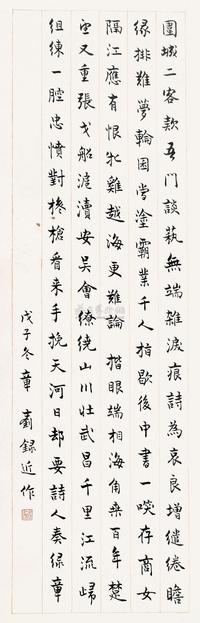 圍城二客款吾門談蓺無端雜淚痕詩為哀良增繾綣瞻
緣排難夢輪囷當塗霸業千人指歇後中書一啖存商女
隔江應有恨牝雞越海更難論 揩眼端相海角來百年楚
空又重張戈船滬瀆安吳會繚繞山川壯武昌千里江流歸
組練一腔忠憤對欃槍看來手挽天河日却要詩人奏綠章
戊子冬 章劉錄近作